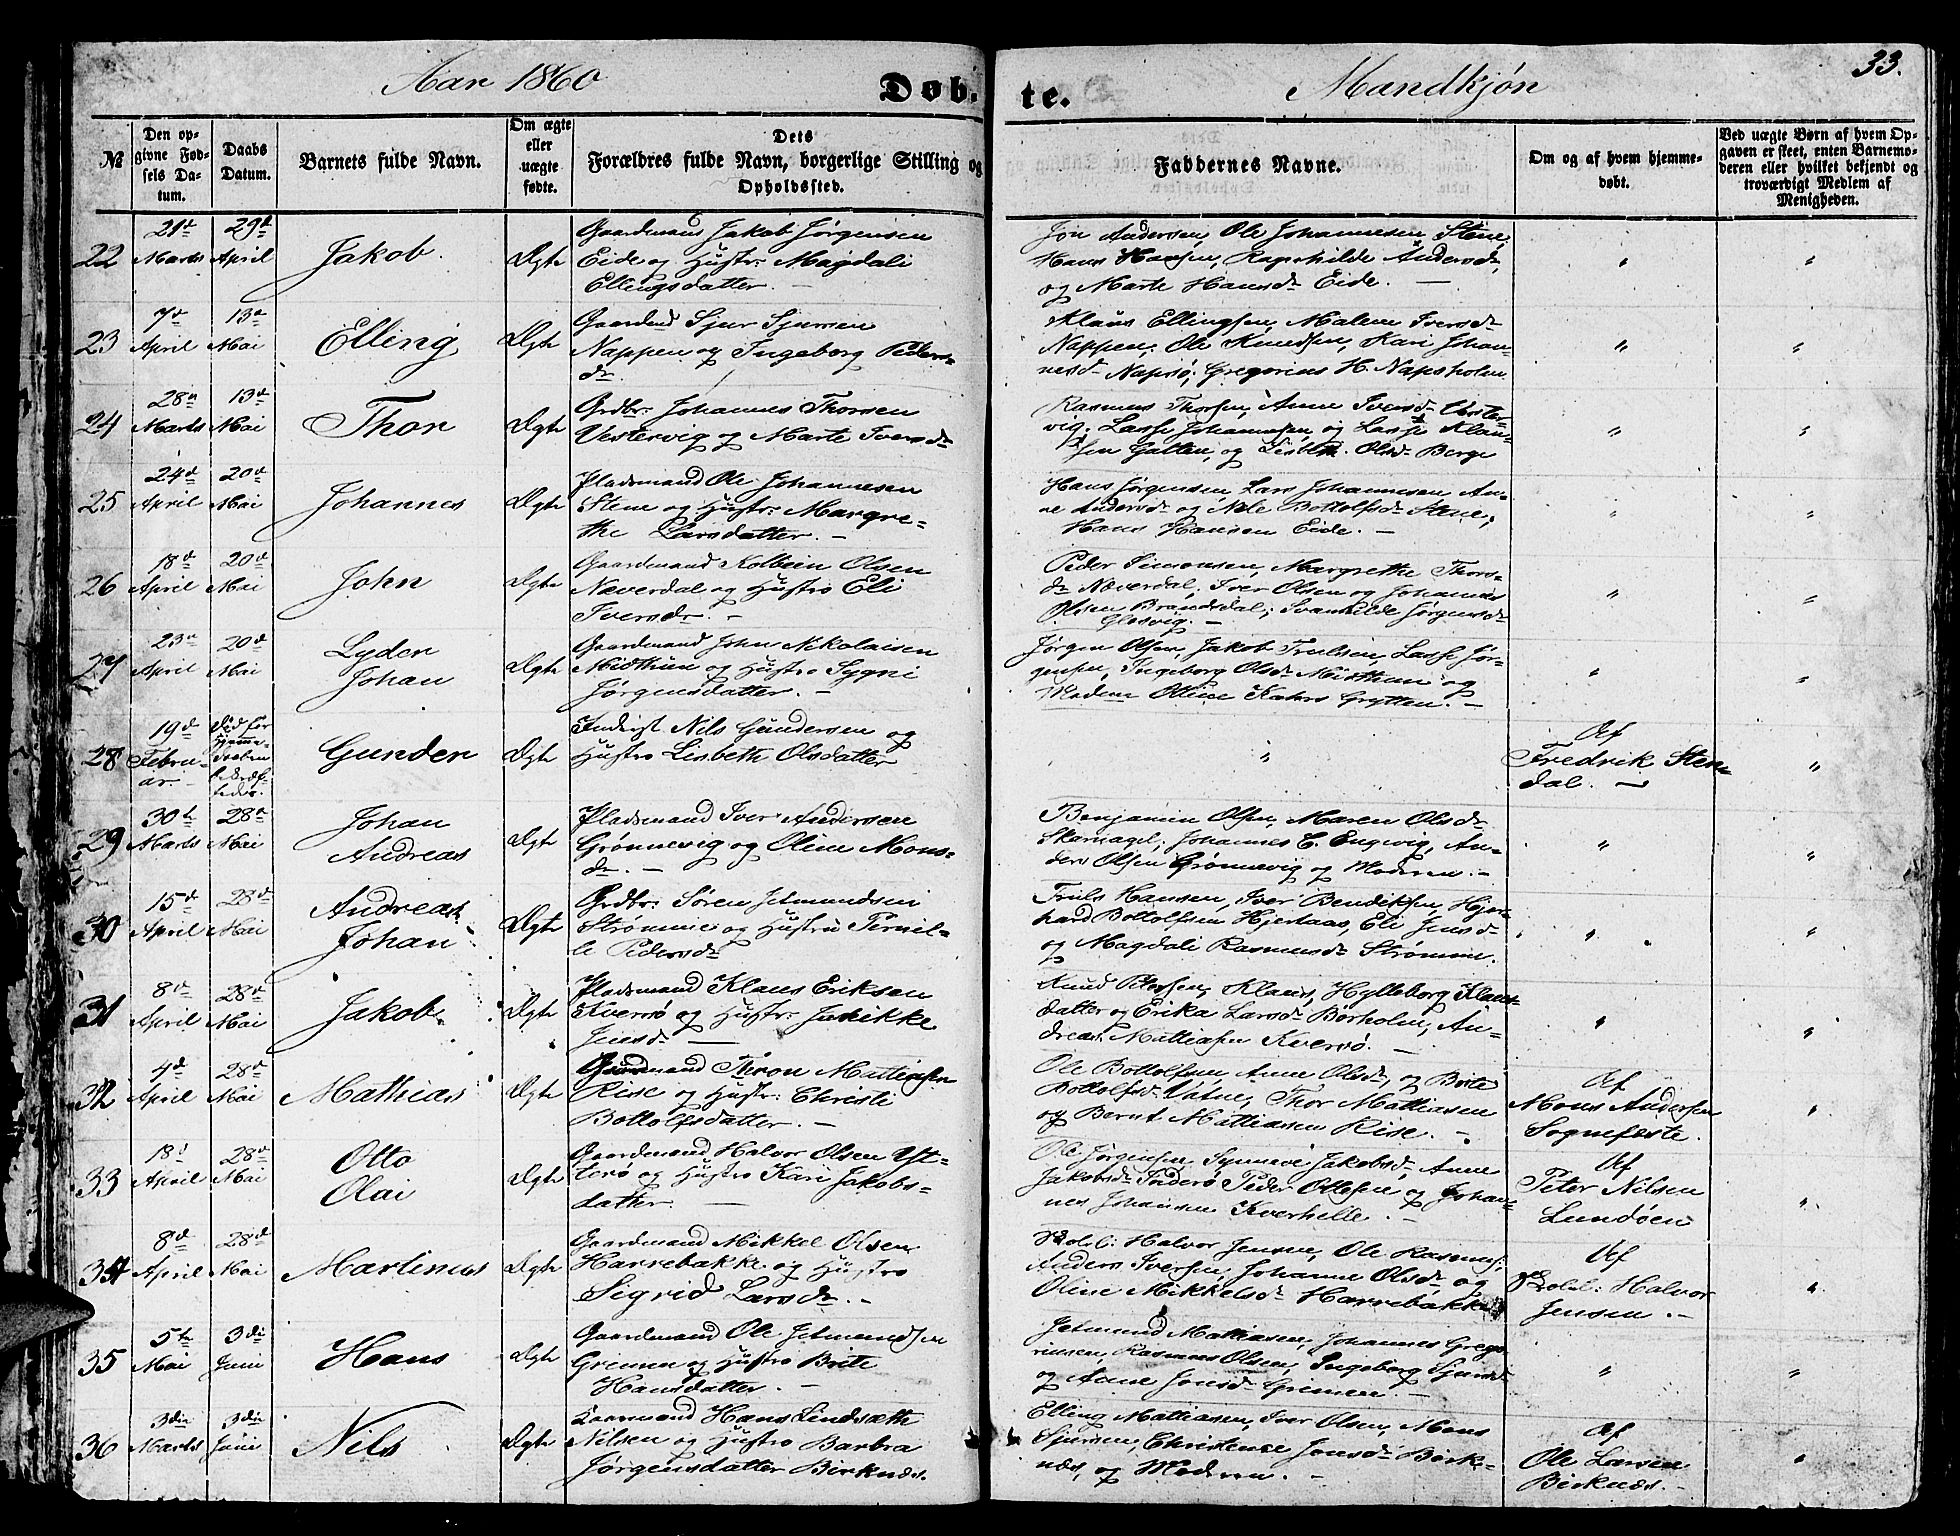 Aar 1860
Døb-
te.
Mandkjøn
33.
№
Den op-
givne Fød-
sels Da-
tum.
Daabs
Datum.
Barnets fulde Navn.
Om ægte
eller
uægte
fødte.
Dets
Forældres fulde Navn, borgerlige Stilling og
Opholdssted.
Faddernes Navne.
Om og af hvem hjemme-
døbt.
Ved uægte Børn af hvem Op-
gaven er skeet, enten Barnemo-
deren eller hvilket bekjendt og
troværdigt Medlem af
Menigheden.
22
21de
Marts
29de
April
Jakob
Ægte
Gaardmand Jakob Jørgensen
Eide og Hustr: Magdali
Ellingsdatter. —
Jon Andersen, Ole Johannesen Stene,
Hans Hansen, Ragnhilde Andersdr,
og Marte Hansdr Eide. —
"
"
23
7de
April
13de
Mai
Elling
Ægte
Gaardmd Sjur Sjursen
Nappen og Ingeborg Peders-
dr.
Klaus Ellingsen, Malene Iversdr
Nappen, Ole Knudsen, Kari Johan-
nesdr Napsø, Gregorius H. Napsholm
"
"
24
28de
Marts
13de
Mai
Thor
Ægte
Grdbr: Johannes Thorsen
Vestervig og Marte Iversdr
Rasmus Thorsen, Anne Iversdr Vester-
vig, Lasse Johannesen og Lasse Klau-
sen Gatten, og Lisbeth Olsdr Berge
"
"
25
24de
April
20de
Mai
Johannes
Ægte
Pladsmand Ole Johannesen
Stene og Hustr: Margre-
the Larsdatter. —
Hans Jørgensen, Lars Johannesen, An-
ne Andersdr og Nele Bottolfsdr Stene,
Hans Hansen Eide. —
"
"
26
18de
April
20de
Mai
John
Ægte
Gaardmand Kolbein Olsen
Næverdal og Hustro Eli
Iversdr. —
Peder Simonsen, Margrethe Thors-
dr Næverdal, Iver Olsen og Johannes
Olsen Brandsdal, Svanhilde Jørgensdr
Glosvig. —
"
"
27
23de
April
20de
Mai
Lyder
Johan
Ægte
Gaardmand John Nikolaisen
Midthien og Hustro Sygni
Jørgensdatter. —
Jørgen Olsen, Jakob Trulsen, Lasse Jør-
gensen, Ingeborg Olsdr Midthien og
Madame Ottine Kahrs Grytten. —
"
"
28
19de
Febru-
ar. —
Død før
Hjemme-
daaben
bekræf-
tedes.
Gunder
Ægte
Inderst Nils Gundersen og
Hustro Lisbeth Olsdatter
"
Af
Fredrik Sten-
dal. —
"
29
30te
Marts
28de
Mai
Johan
Andreas
Ægte
Pladsmand Iver Andersen
Grønnevig og Oline Mons-
dr. —
Benjamin Olsen, Maren Olsdr
Skarnagel, Johannes C. Engevig, An-
ders Olsen Grønnevig og Moderen. —
"
"
30
15de
April
28de
Mai
Andreas
Johan
Ægte
Grdbr: Søren Jetmundsen
Strømme og Hustru Pernil-
le Pedersdr
Truls Hansen, Iver Bendiksen, Hjer-
hard Bottolfsen Hjertaas, Eli Jensdr
og Magdali Rasmusdr Strømme.
"
"
31
8de
April
28de
Mai
Jakob.
Ægte
Pladsmand Klaus Eriksen
Kversø og Hustr:
Jensdr —
Knud Petersen, Klaus, Hylleborg Klaus-
datter og Erika Larsdr Borholm, An-
dreas Mattiasen Kversø. —
"
"
32
4de
April
28de
Mai
Mathias
Ægte
Gaardmand Mattiasen
Rise og Hustr: Christi
Bottolfsdatter. —
Ole Bottolfsen, Anne Olsdr, og Brite
Bottolfsdr Vatne, Thor Mattiasen
og Bernt Mattiasen Rise. —
Af
Mons Andersen
Sognefæste.
"
33
18de
April
28de
Mai
Otto
Olai
Ægte
Gaardmand Halvor Olsen Yt-
terø og Hustro Kari Jakobs-
datter. —
Ole Jørgensen, Synneve Jakobsdr, Anne
Jakobsdr Inderø, Peder Ottesen og Johan-
nes Johansen Kverhelle. —
Af
Peter Nilsen
Lundøen
"
34
8de
April
28de
Mai
Martinus
Ægte
Gaardmand Mikkel Olsen
Harrebakke og Hustro
Sigrid Larsdr. —
Skolel: Halvor Jensen, Ole Rasmus:
Anders Iversen, Johanne Olsdr og
Oline Mikkelsdr Harrebakke
Af
Skolel: Halvor
Jensen. —
"
35
5te
Mai
3die
Juni
Hans
Ægte
Gaardmand Ole Jetmundsen
Grimen og Hustro Brite
Hansdatter. —
Jetmund Mattiasen, Johannes Grego-
riusen, Rasmus Olsen, Ingeborg Sjursdr
og Anne Jonsdr Grimen. —
"
"
36
3die
Marts
3die
Juni
Nils
Ægte
Gaardmand Hans Lindsæth
Nilsen og Hustro Barbra
Jørgensdatter Birknæs.
Elling Mattiasen, Iver Olsen, Mons
Sjursen, Christense Jonsdr Birk-
næs, og Moderen. —
Af
Ole Larsen
Birknæs. —
"